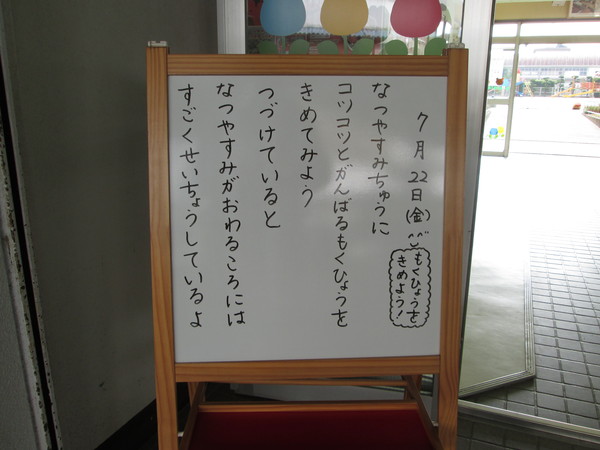 7月22日(金)
もくひょうを
きめよう!
なつやすみちゅうに
コツコツとがんばるもくひょうを
きめてみよう
つづけていると
なつやすみがおわるころには
すごくせいちょうしているよ